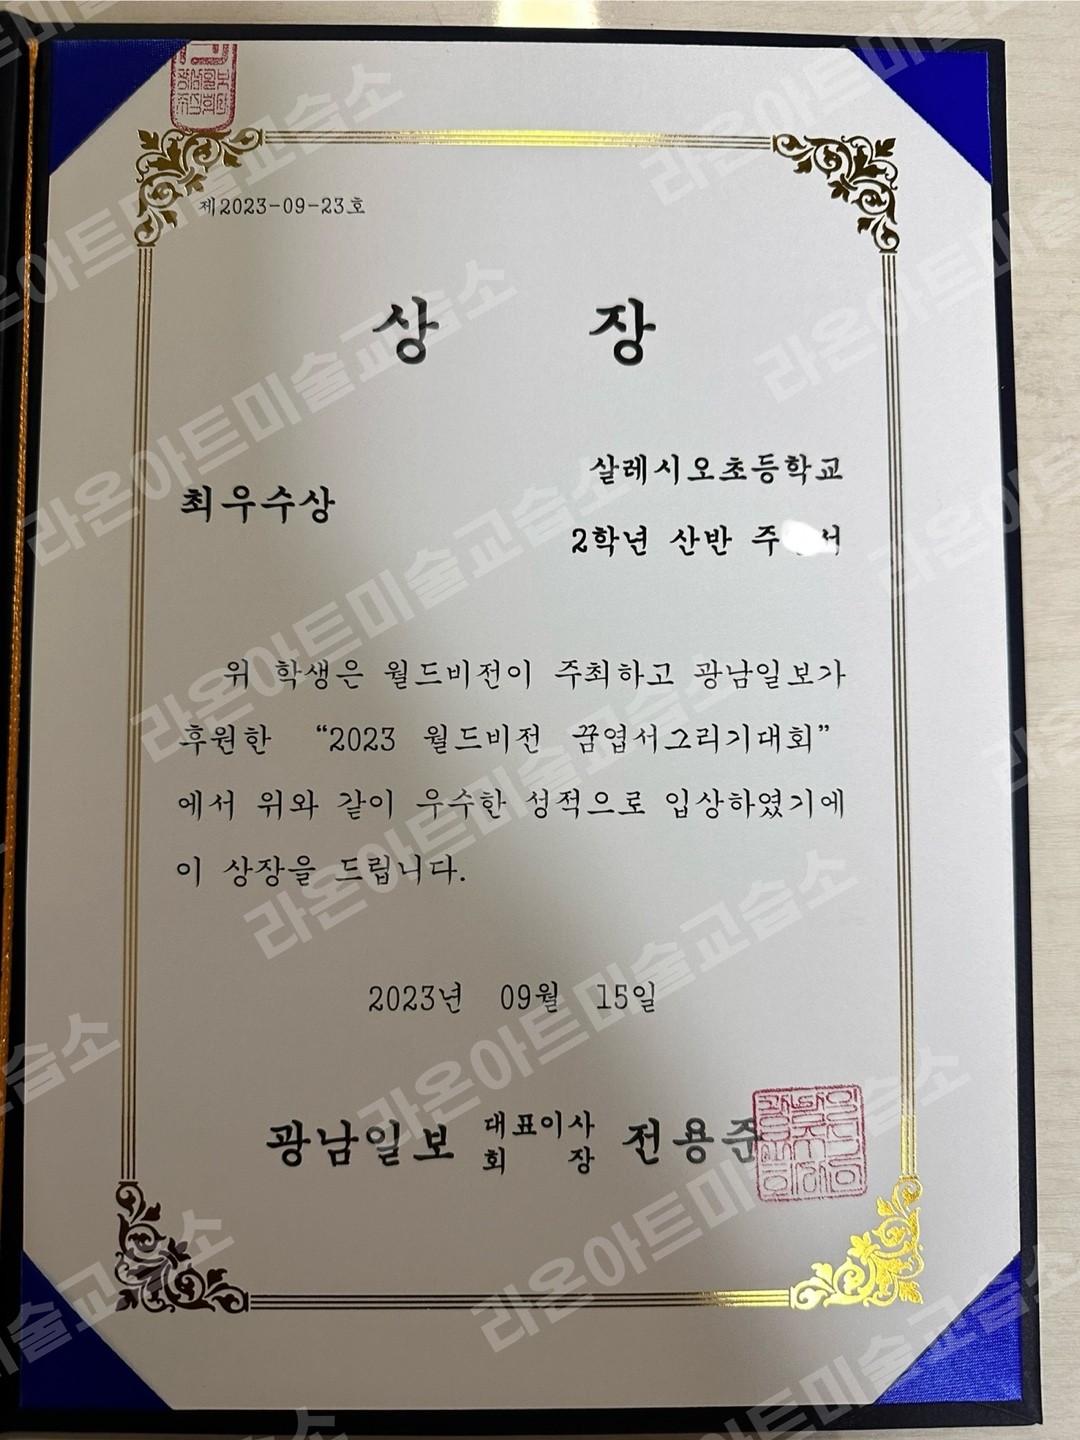 제2023-09-23호
상 장
최우수상
살레시오초등학교
2학년 산반 주 서
위 학생은 월드비전이 주최하고 광남일보가
후원한 “2023 월드비전 꿈엽서그리기대회”
에서 위와 같이 우수한 성적으로 입상하였기에
이 상장을 드립니다.
2023년 09월 15일
광남일보 대표이사 회장 전용준
라온아트미술교습소